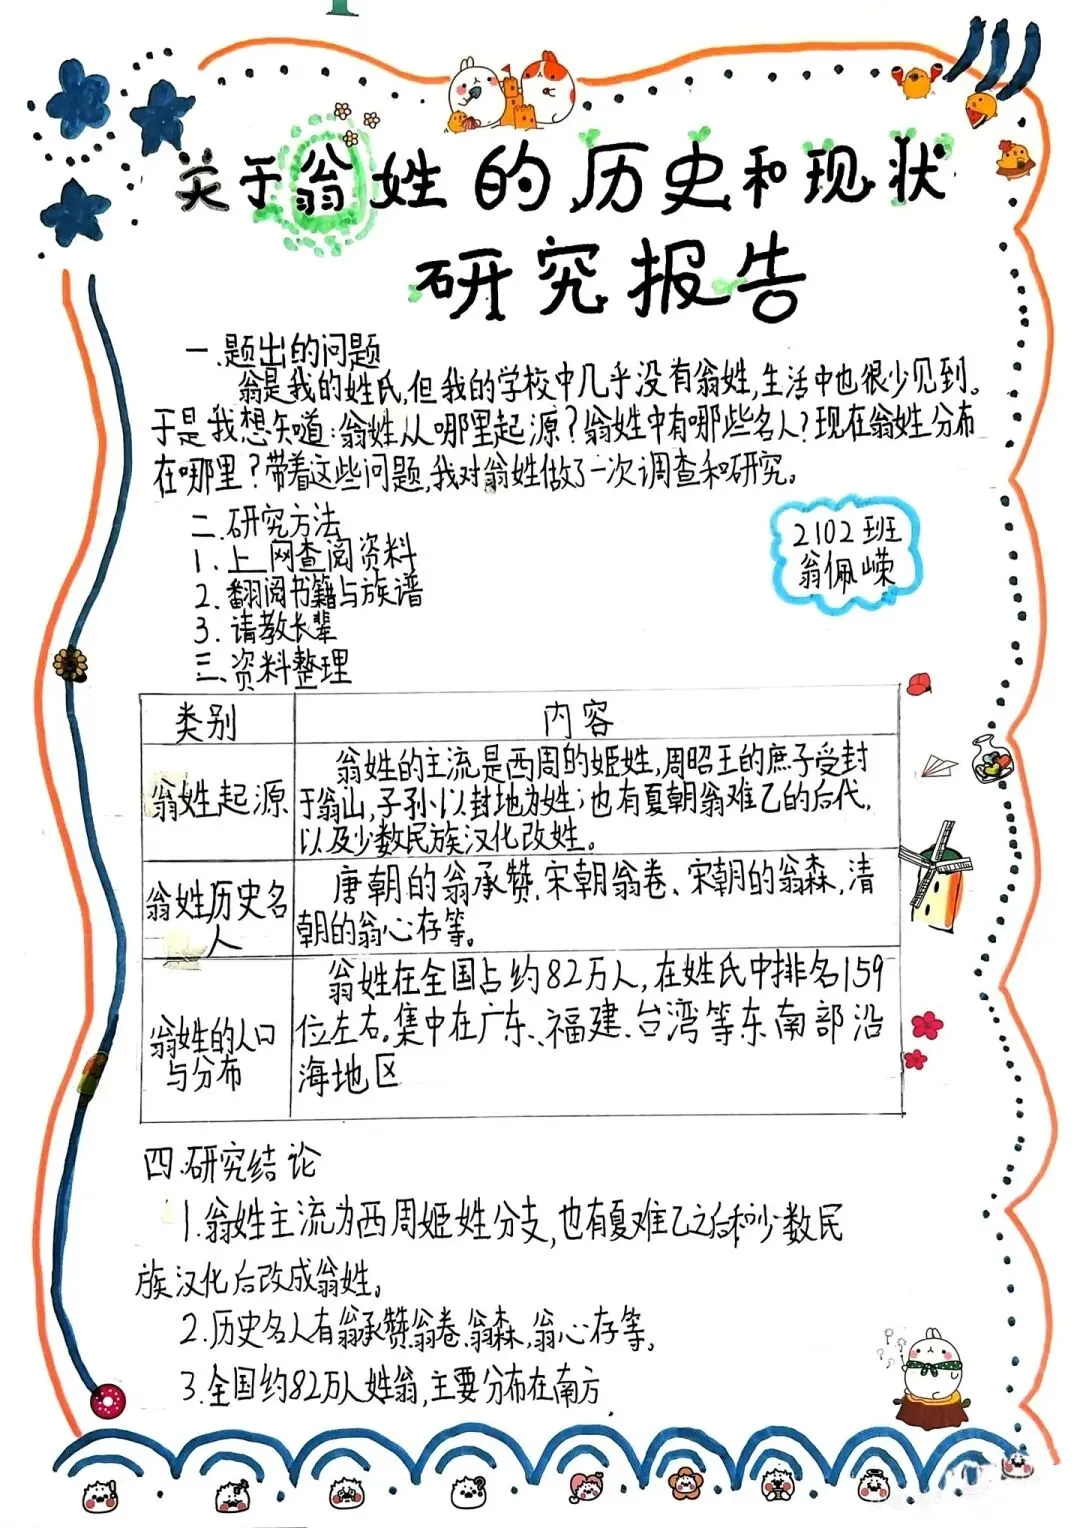 关于翁姓的历史和现状
研究报告
一.题出的问题
翁是我的姓氏,但我的学校中几乎没有翁姓,生活中也很少见到。
于是我想知道:翁姓从哪里起源?翁姓中有哪些名人?现在翁姓分布
在哪里?带着这些问题,我对翁姓做了一次调查和研究。
二.研究方法
1.上网查阅资料
2.翻阅书籍与族谱
3.请教长辈
2102班
翁佩嵘
三.资料整理
类别
内容
翁姓起源
翁姓的主流是西周的姬姓,周昭王的庶子受封
于翁山,子孙以封地为姓;也有夏朝翁难乙的后代,
以及少数民族汉化改姓。
翁姓历史名
人
唐朝的翁承赞、宋朝翁卷、宋朝的翁森,清
朝的翁心存等。
翁姓的人口
与分布
翁姓在全国占约82万人,在姓氏中排名159
位左右。集中在广东、福建、台湾等东南部沿
海地区
四.研究结论
1.翁姓主流为西周姬姓分支,也有夏难乙之后和少数民
族汉化后改成翁姓。
2.历史名人有翁承赞、翁卷、翁森、翁心存等。
3.全国约82万人姓翁,主要分布在南方